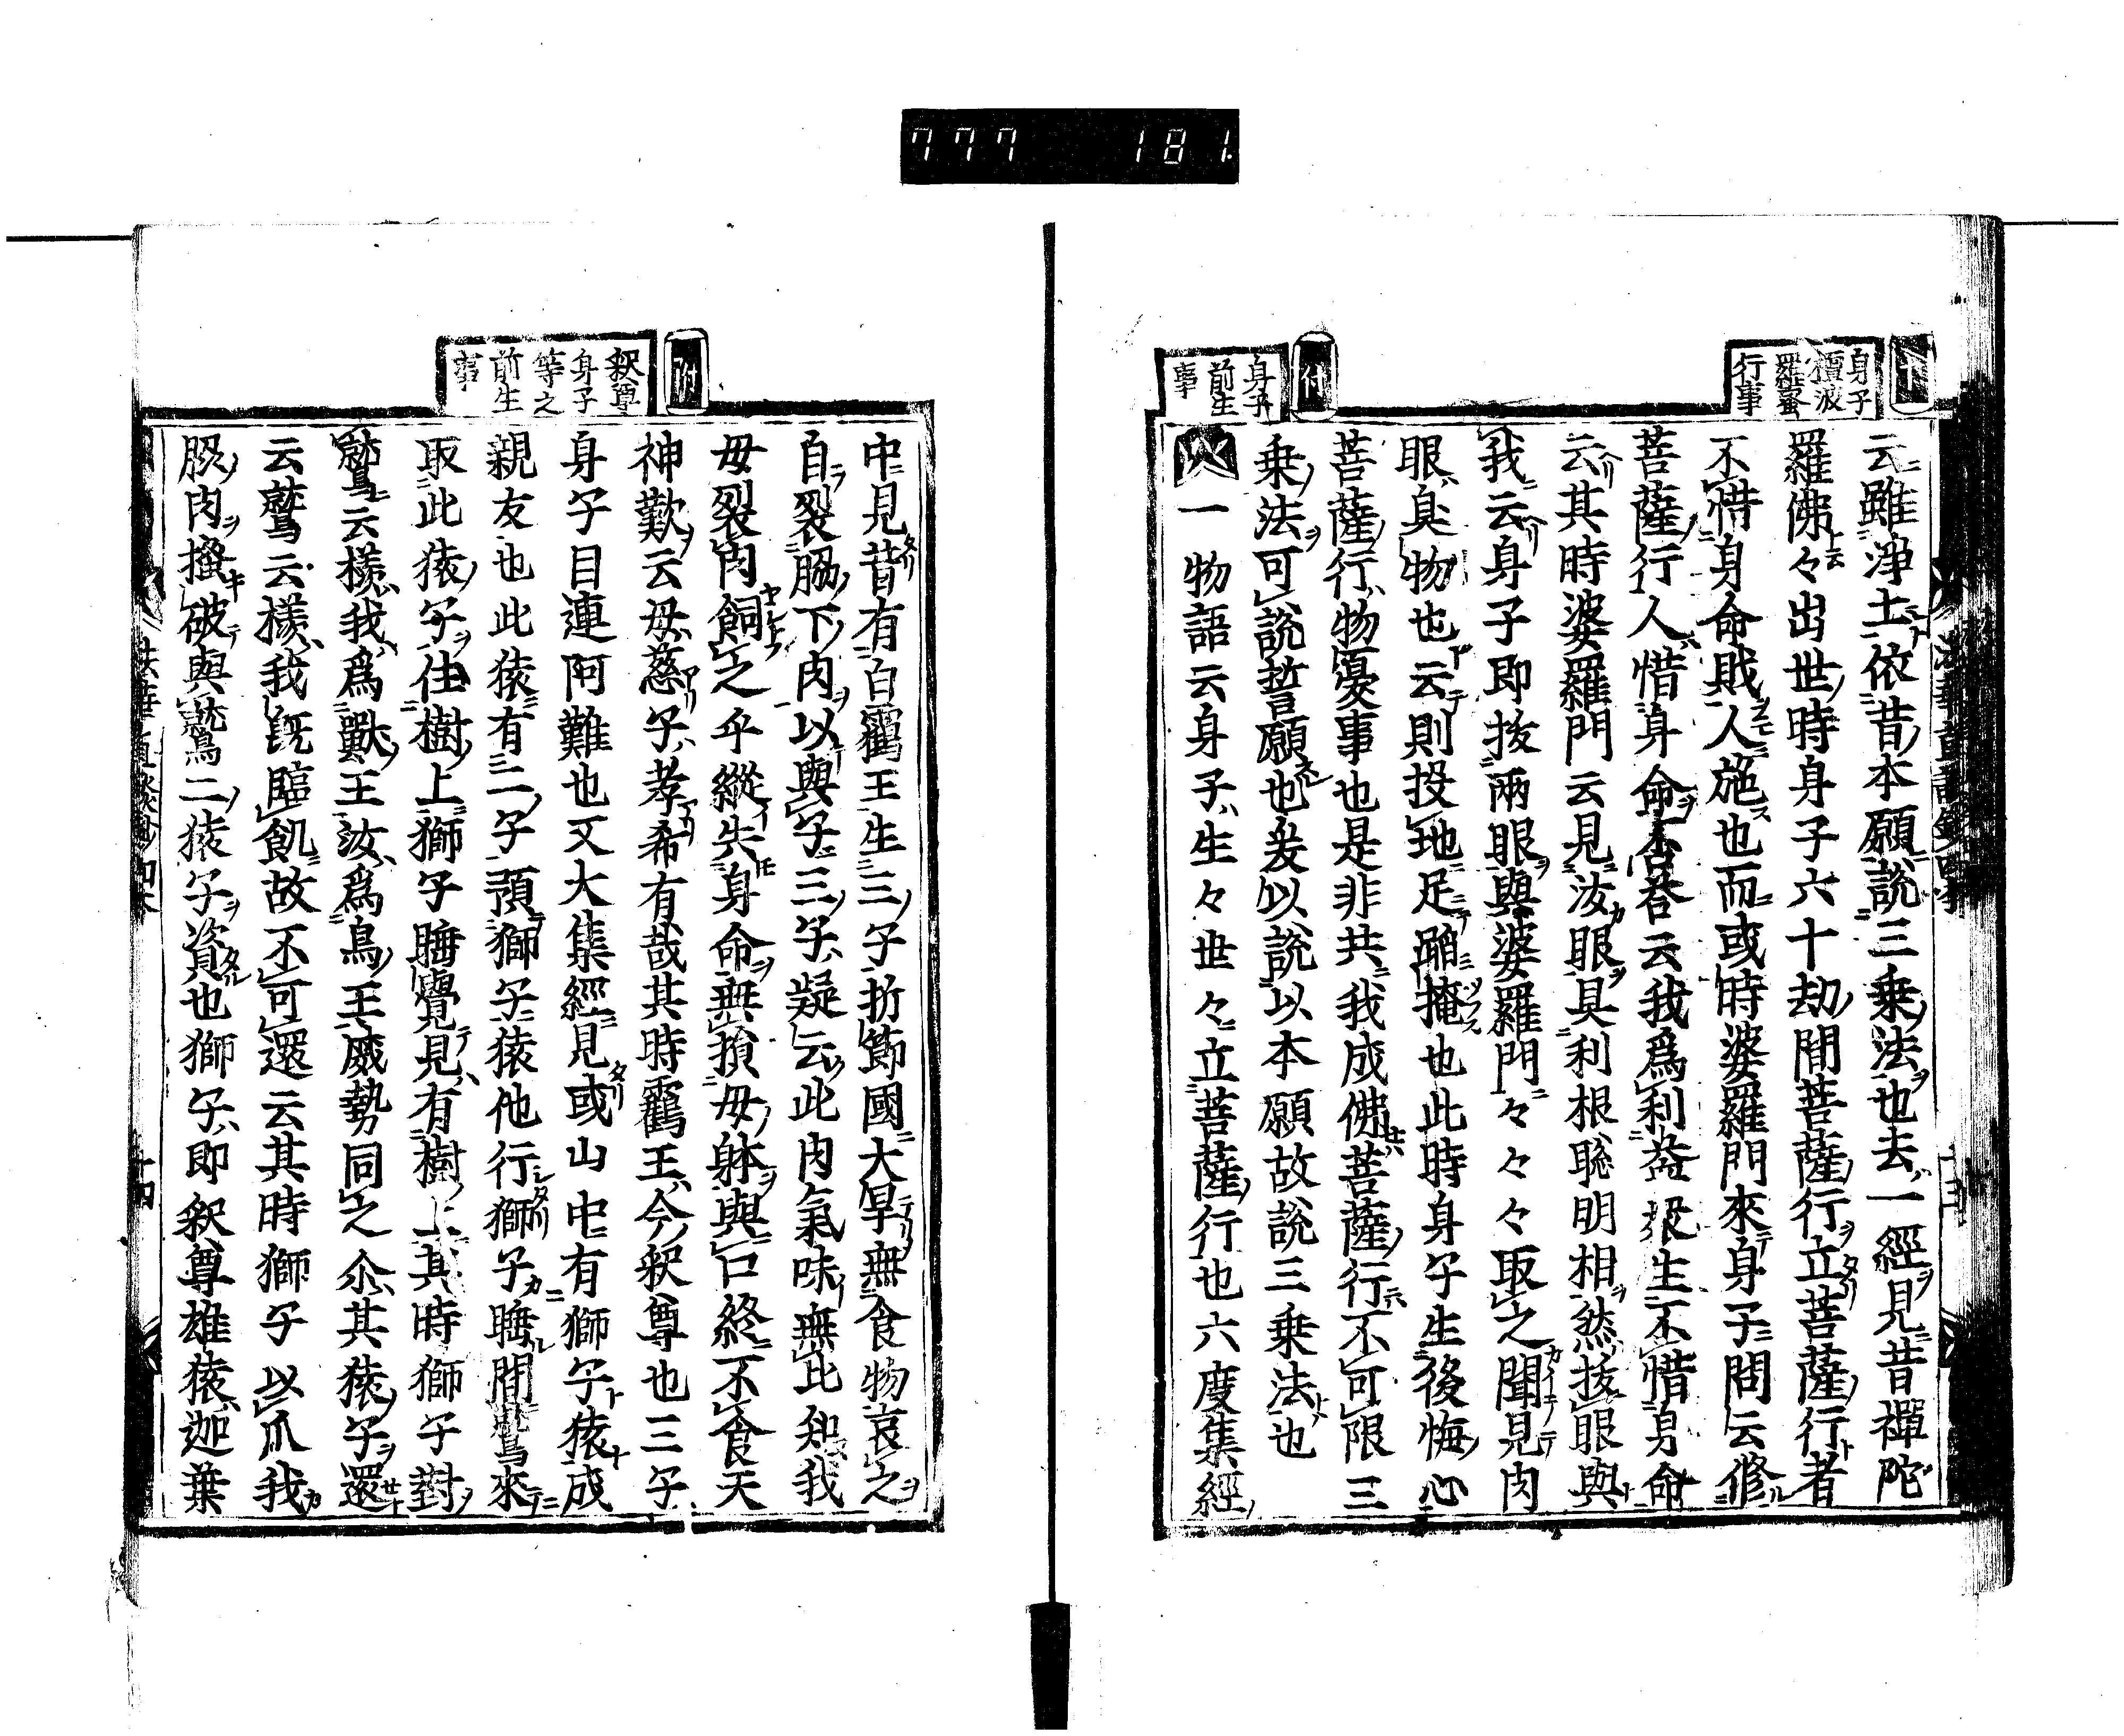 777 181
身子
檀波
羅蜜
行事
云雖淨土依昔本願説三乗法也去一經見昔禪陀
羅佛々出世時身子六十劫間菩薩行立菩薩行者
不惜身命賊人施也而或時婆羅門來身子問云修
菩薩行人惜身命否荅云我爲利益衆生不惜身命
云其時婆羅門云見汝眼具利根聡明相然抜眼與
我云身子即抜兩眼與婆羅門々々々取之聞見肉
眼臭物也云則投地足蹈掩也此時身子生後悔心
菩薩行物憂事也是非共我成佛菩薩行不可限三
乗法可説誓願也爰以説以本願故説三乗法也
付
身子
前生
事
一物語云身子生々世々立菩薩行也六度集經
附
釈尊
身子
等之
前生
事
中見昔有白鸖王生三子折節國大旱無食物哀之
自裂脇下肉以與子三子疑云此肉氣味無此知我
母裂肉飼之乎縱失身命無損母躰與口終不食天
神歎云母慈子孝希有哉其時鸖王今釈尊也三子
身子目連阿難也又大集經見或山中有獅子猿成
親友也此猿有二子預獅子猿他行獅子睡間鷲來
取此猿子住樹上獅子睡覺見有樹上其時獅子對
鷲云様我爲獸王汝爲鳥王威勢同之尒其猿子還
云鷲云様我既臨飢故不可還云其時獅子以爪我
股肉搔破與鷲二猿子資也獅子即釈尊雄猿迦葉